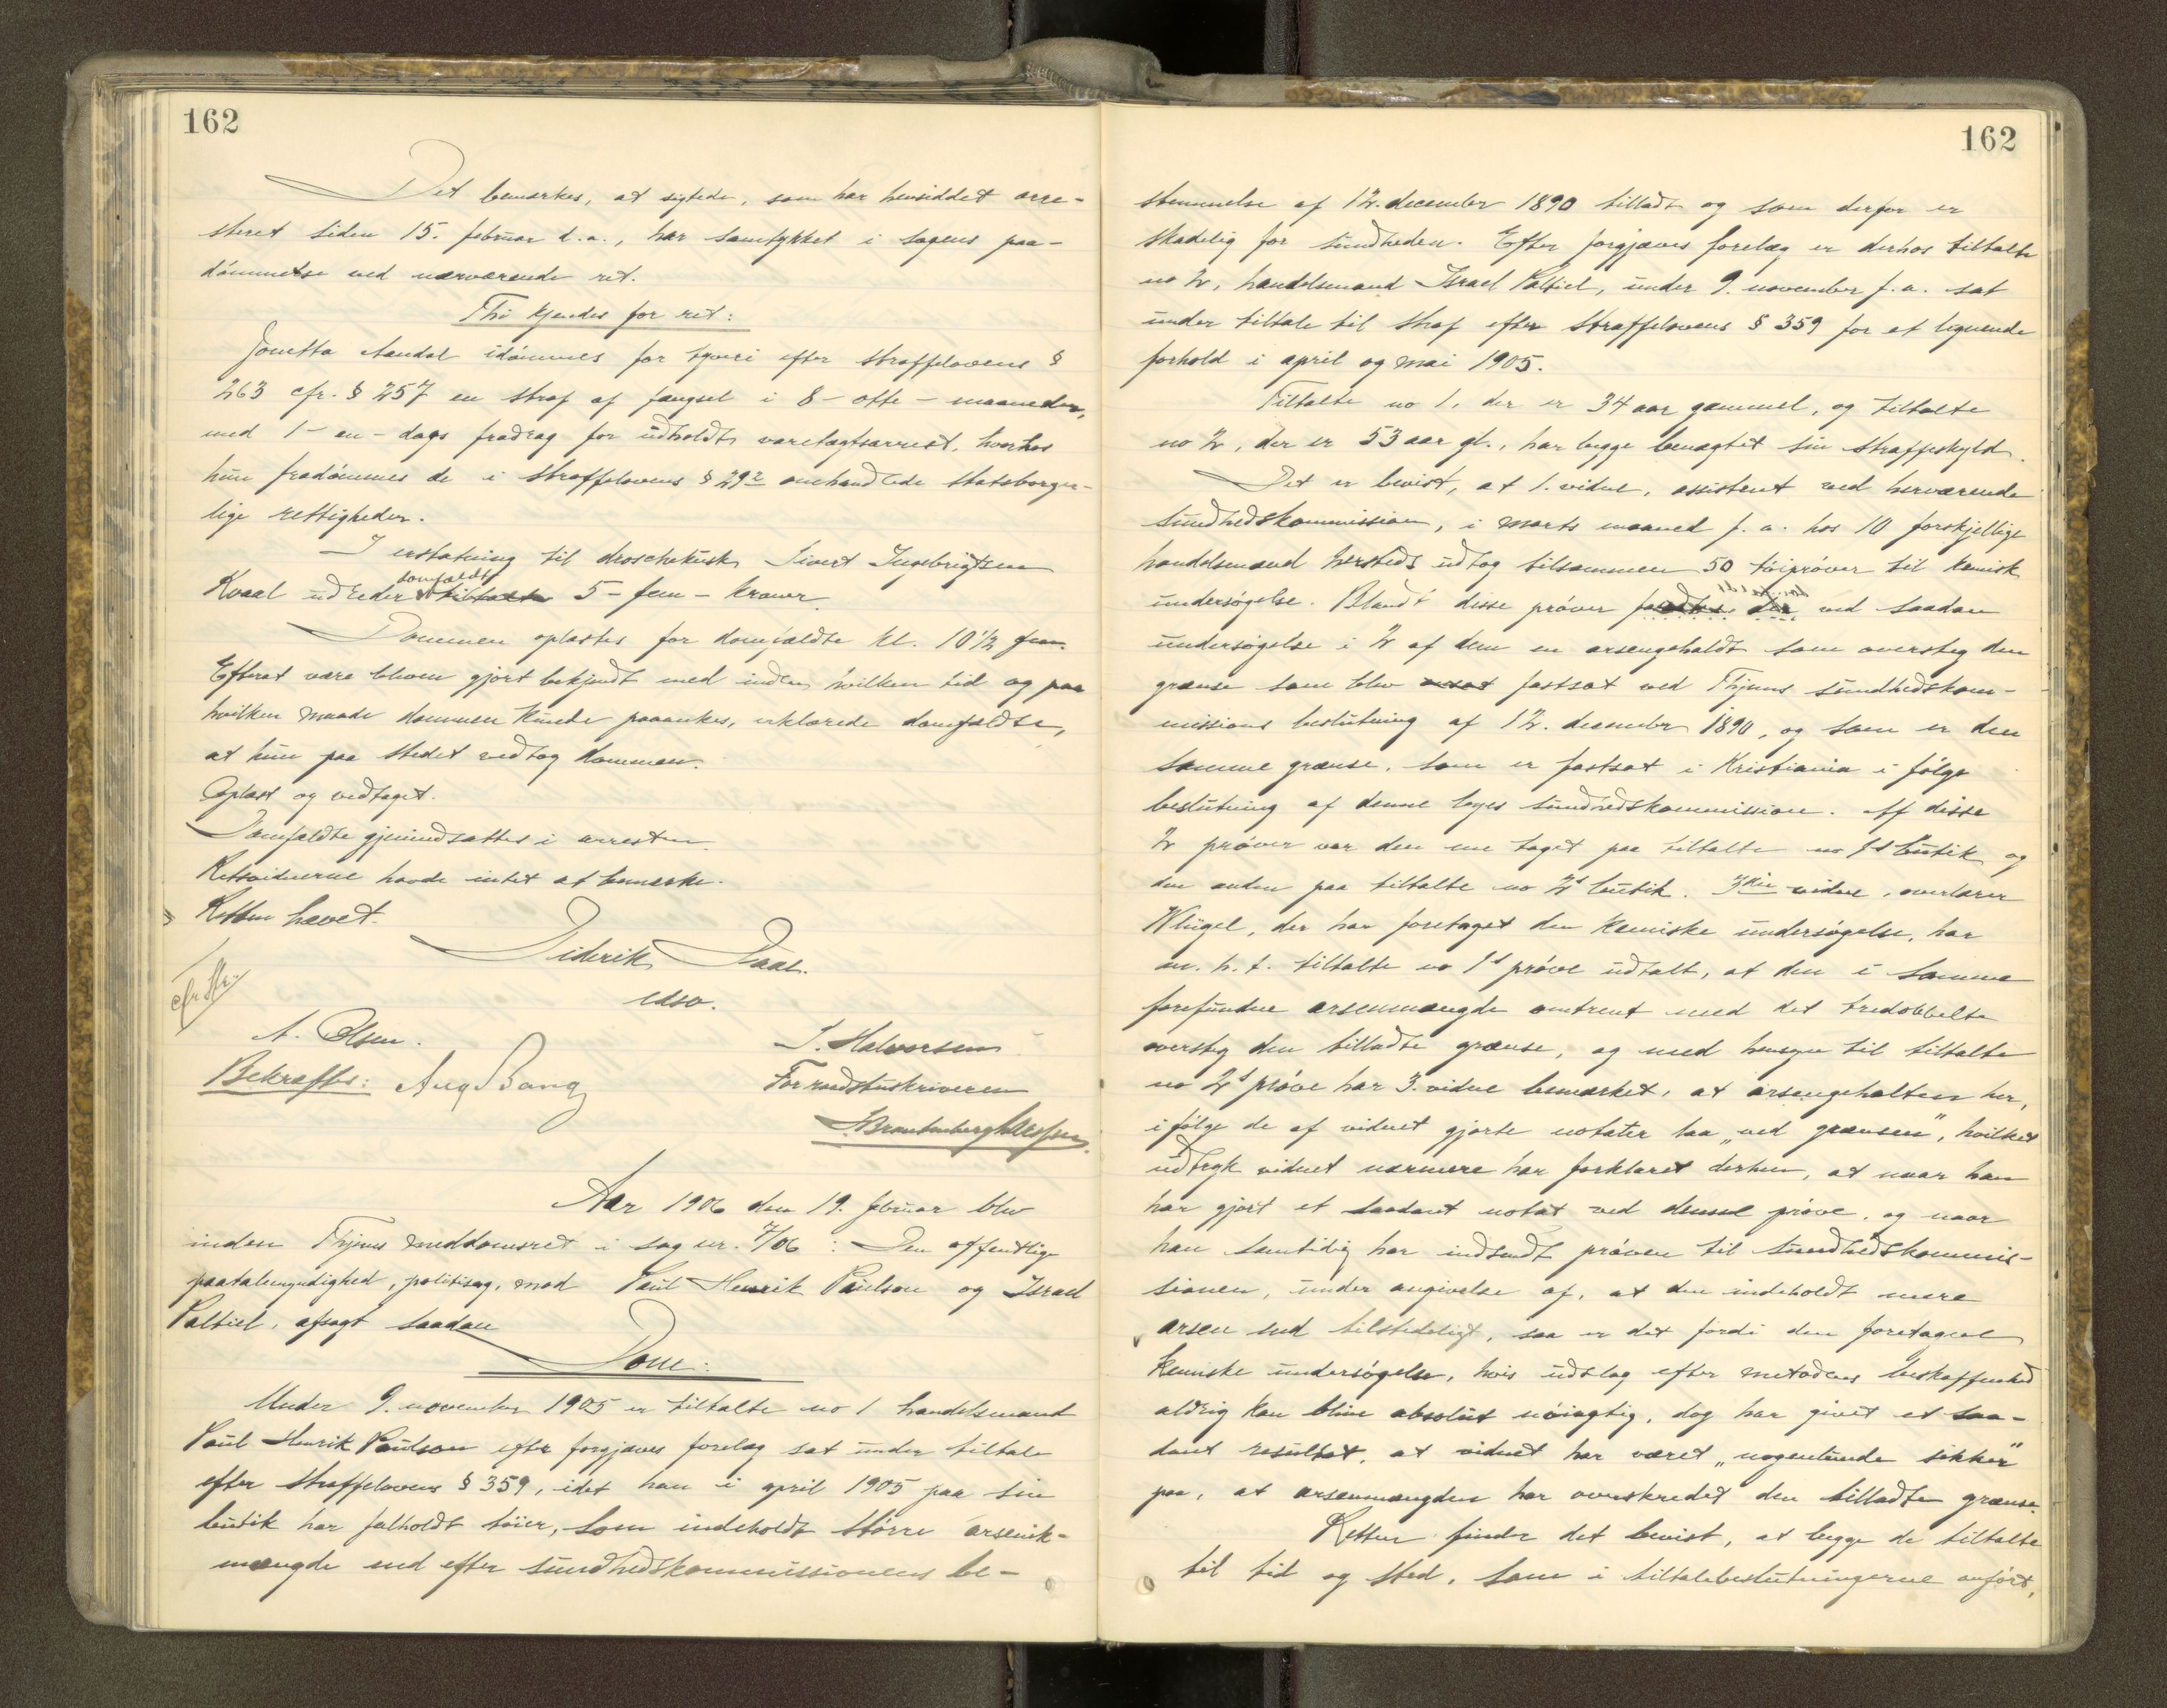 162
Det bemærkes, at sigtede, som har hensiddet arre-
steret siden 15. februar d.a., har samtykket i sagens paa-
dømmelse ved nærværende ret.
Thi kjendes for ret:
Jonetta Aandal idømmes for tyveri efter straffelovens §
263 cfr. § 257 en straf af fængsel i 8 - otte - maaneder,
med 1 - en - dags fradrag for udholdt varetægtsarrest, hvorhos
hun fradømmes de i straffelovens § 29² omhandlede statsborger-
lige rettigheder.
I erstatning til droschekusk Sivert Ingebrigtsen
Kvaal udreder domfældte 5 - fem - kroner.
Dommen oplæstes for domfældte kl. 10½ fm.
Efterat være bleven gjort bekjendt med inden hvilken tid og paa
hvilken maade dommen kunde paaankes, erklærede domfældte,
at hun paa stedet vedtog dommen.
Oplæst og vedtaget.
Domfældte gjenindsattes i arresten.
Retsvidnerne havde intet at bemerke.
Retten hævet.
Diderik Daae.
edsv.
A. Olsen.
J. Halvorsen
Bekræftes: Aug Bang
For raadstuskriveren
Aar 1906 den 19. februar blev
inden Thjems meddomsret i sag nr. 7/06 : Den offentlige
paatalemyndighed, politisag, mod Paul Henrik Paulsen og Israel
Paltiel, afsagt saadan
Dom:
Under 9. november 1905 er tiltalte no 1 handelsmand
Paul Henrik Paulson efter forgjæves forelæg sat under tiltale
efter straffelovens § 359, idet han i april 1905 paa sin
butik har falholdt tøier, som indeholdt større arsenik-
mængde end efter sundhedskommissionens be-
162
stemmelse af 12. december 1890 tilladt og som derfor er
skadelig for sundheden. Efter forgjæves forelæg er derhos tiltalte
no 2, handelsmand Israel Paltiel, under 9. november f.a. sat
under tiltale til straf efter straffelovens § 359 for et lignende
forhold i april og mai 1905.
Tiltalte no 1, der er 34 aar gammel, og tiltalte
no 2, der er 53 aar gl., har begge benægtet sin straffeskyld.
Det er bevist, at 1. vidne, assistent ved herværende
sundhedskommission, i marts maaned f.a. hos 10 forskjellige
handelsmænd hersteds udtog tilsammen 50 tøiprøver til kemisk
undersøgelse. Blandt disse prøver fandtes der ved saadan
undersøgelse i 2 af dem en arsengehaldt som oversteg den
grænse som blev fastsat ved Thjems sundhedskom-
missions beslutning af 12. december 1890, og som er den
samme grænse, som er fastsat i Kristiania i følge
beslutning af denne byes sundhedskommission. Af disse
2 prøver var den ene taget paa tiltalte no 1s butik og
den anden paa tiltalte no 2s butik. 3die vidne, overlærer
Wleügel, der har foretaget den kemiske undersøgelse, har
m. h. t. tiltalte no 1s prøve udtalt, at den i samme
forefundne arsenmængde omtrent med det tredobbelte
oversteg den tilladte grænse, og med hensyn til tiltalte
no 2s prøve har 3. vidne bemærket, at arsengehalten her,
ifølge de af vidnet gjorte notater laa „ved grænsen", hvilket
udtryk vidnet nærmere har forklaret derhen, at naar han
har gjort et saadant notat ved denne prøve, og naar
han samtidig har indsendt prøven til sundhedskommis-
sionen, under angivelse af, at den indeholdt mere
arsen end tilstedeligt, saa er det fordi den foretagne
kemiske undersøgelse, hvis udslag efter metodens beskaffenhed
aldrig kan blive absolut nøiagtig, dog har givet et saa-
dant resultat, at vidnet har været „nogenlunde sikker"
paa, at arsenmængden har overskredet den tilladte grænse.
Retten finder det bevist, at begge de tiltalte
til tid og sted, som i tiltalebeslutningerne anført,